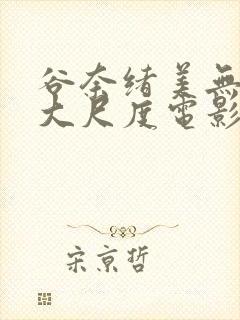 谷奈绪美無
大尺度電影
宋京哲